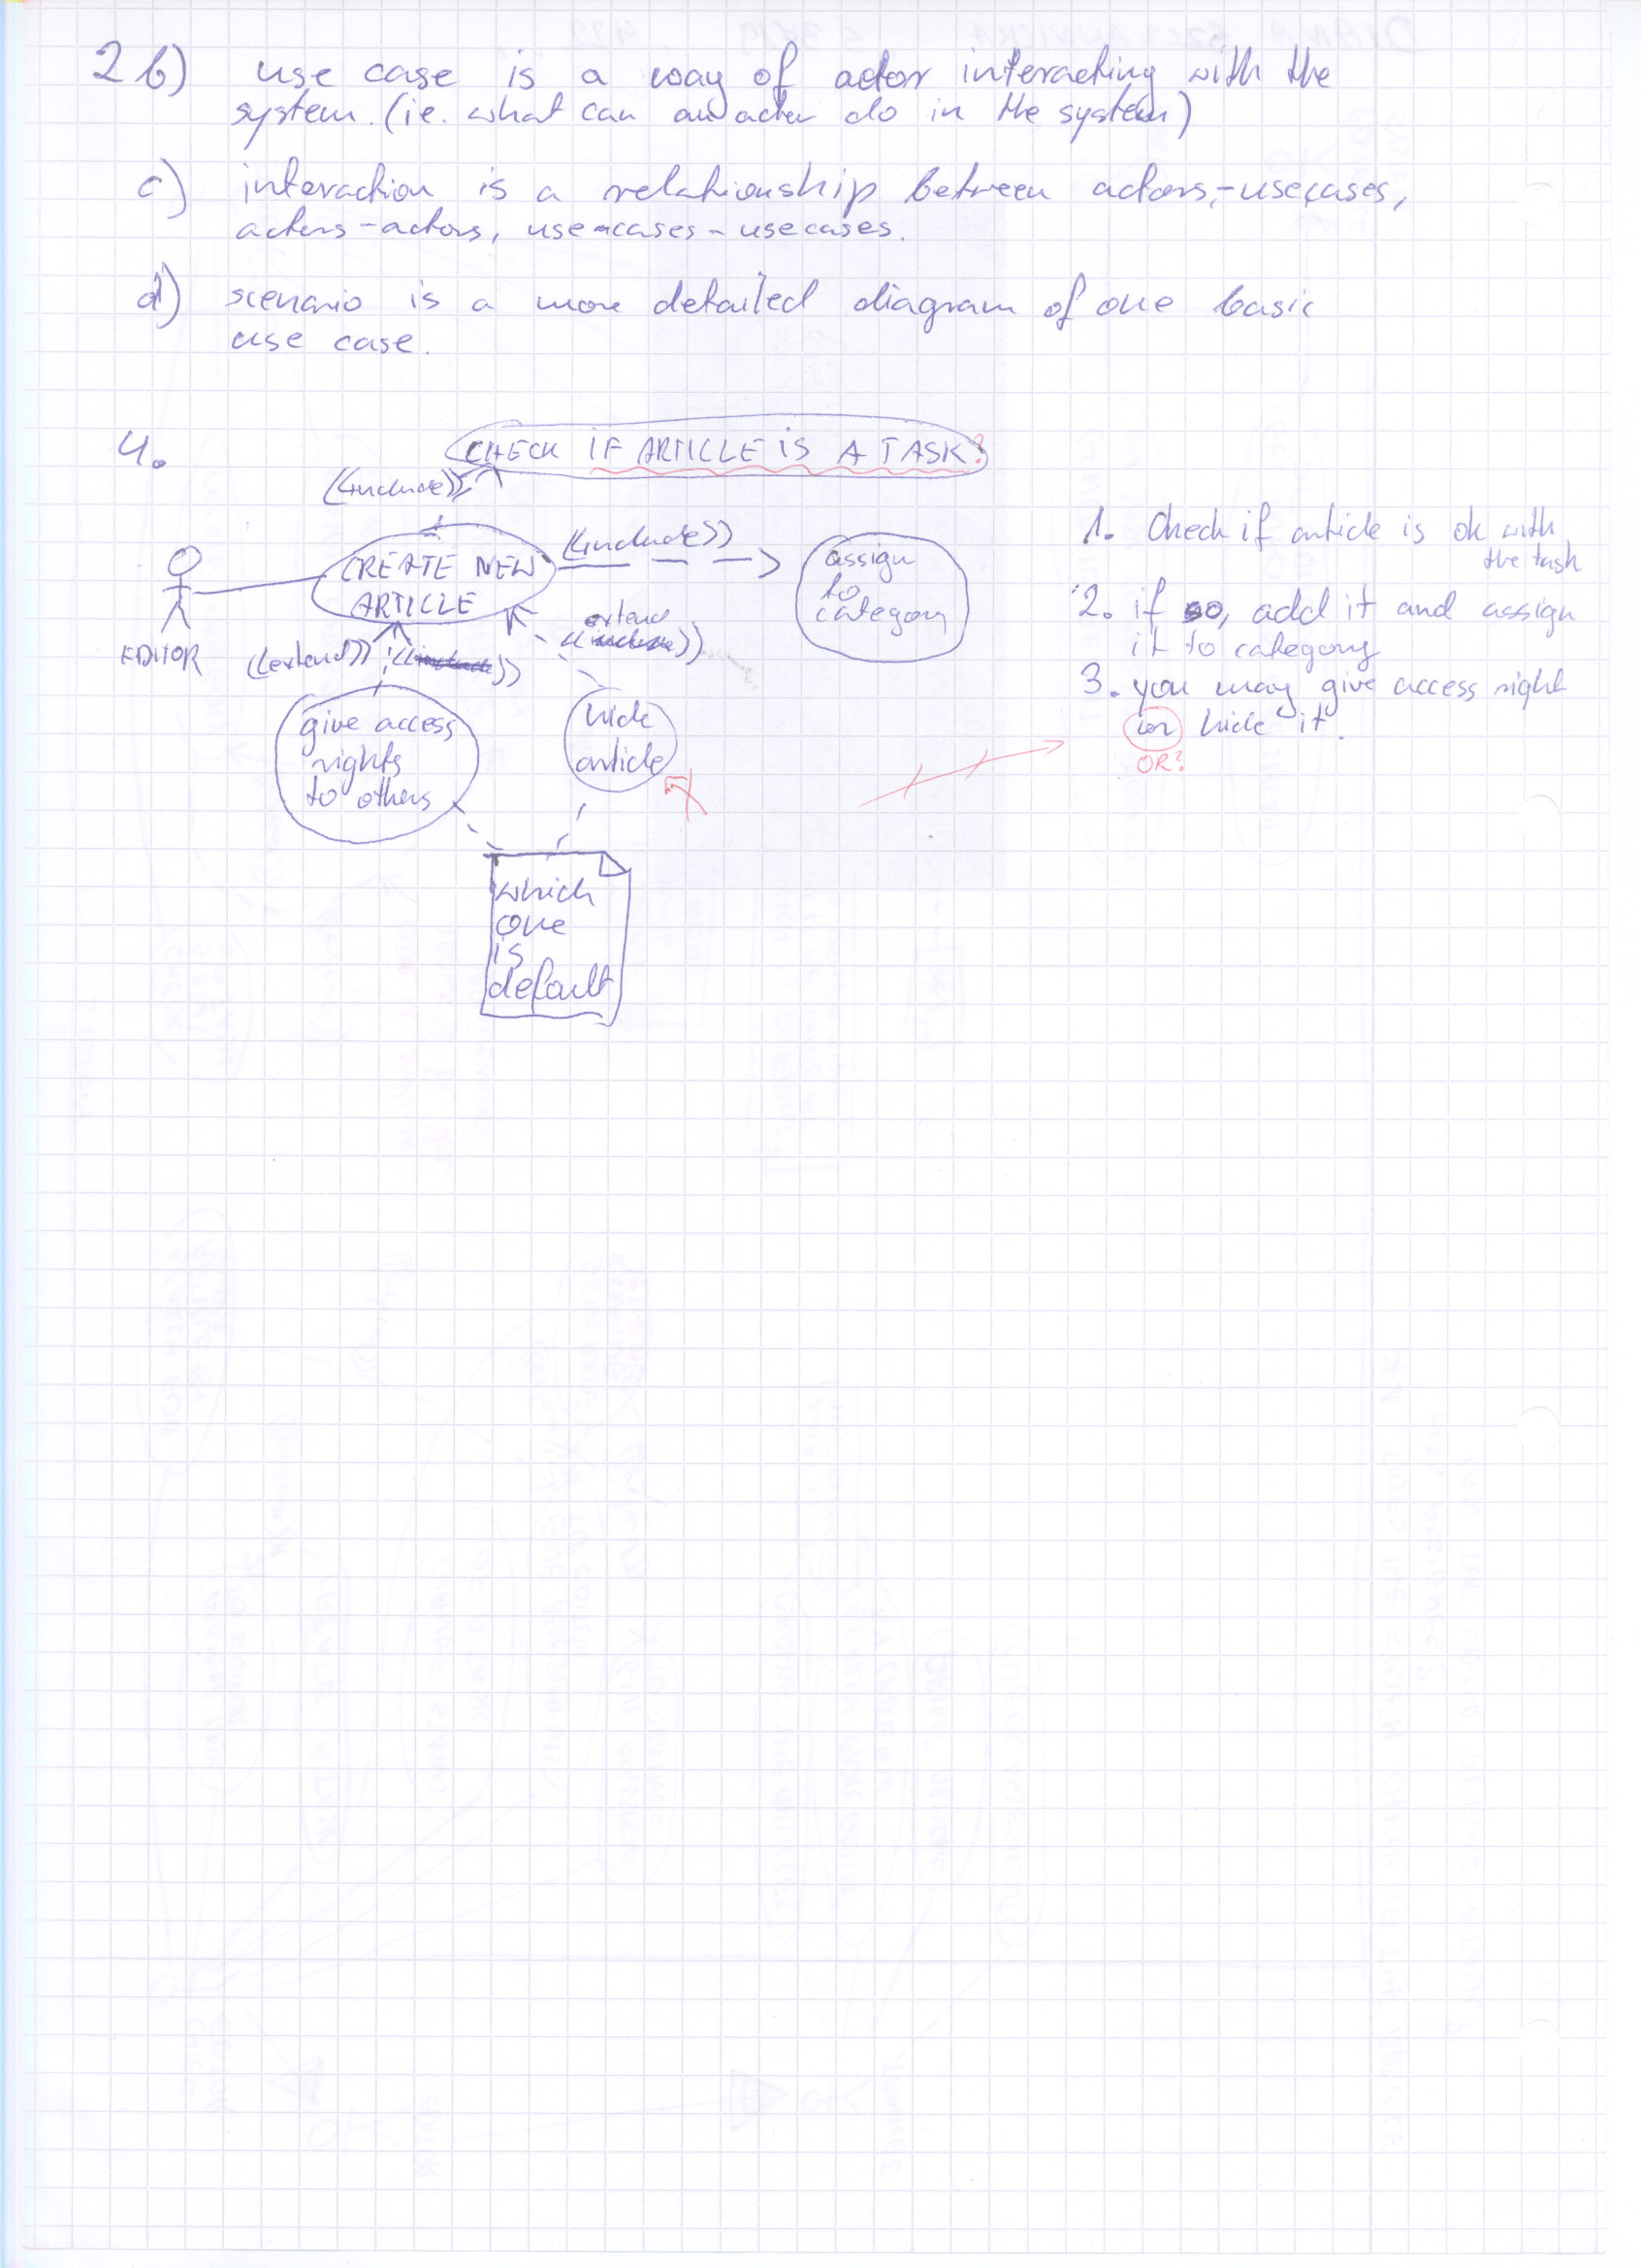 2 b) use case is a way of actor interacting with the
system. (ie. what can an actor do in the system)
c) interaction is a relationship between actors,-usecases,
actors-actors, use-cases - usecases.
d) scenario is a more detailed diagram of one basic
use case.
4.
CHECK IF ARTICLE IS A TASK?
<<include>>
CREATE NEW
ARTICLE
<<include>>
assign
to
category
EDITOR
<<extend>>
extend
give access
rights
to others
hide
article
which
one
is
default
1. Check if article is ok with
the task
2. if so, add it and assign
it to category
3. you may give access right
or hide it.
OR?